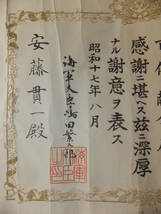 感謝ニ堪ヘス茲ニ深厚
ナル謝意ヲ表ス
昭和十七年八月
海軍大臣嶋田繁太郎
安藤貫一殿